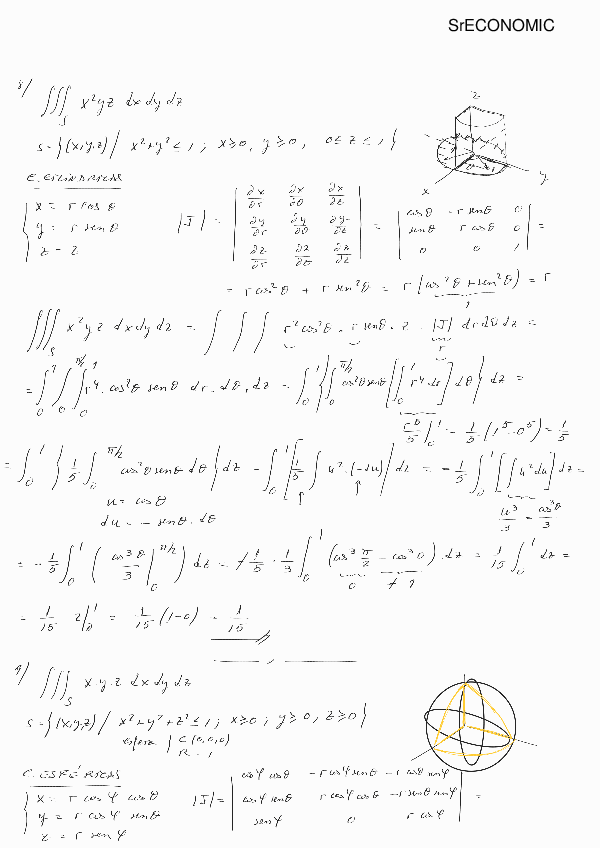 SrECONOMIC
8/ ∭_S x²yz dx dy dz
S = {(x,y,z) / x²+y² ≤ 1 ; x ≥ 0, y ≥ 0, 0 ≤ z ≤ 1}
z
y
x
{ x = r cos θ
y = r sen θ
z = z
|J| = | ∂x/∂r ∂x/∂θ ∂x/∂z ; ∂y/∂r ∂y/∂θ ∂y/∂z ; ∂z/∂r ∂z/∂θ ∂z/∂z | = | cosθ -r senθ 0 ; senθ r cosθ 0 ; 0 0 1 | =
= r cos²θ + r sen²θ = r (cos²θ + sen²θ) = r
1
∭_S x²yz dx dy dz = ∫ ∫ ∫ r² cos²θ . r senθ . z . |J| dr dθ dz =
r
= ∫_0^1 ∫_0^{π/2} ∫_0^1 r⁴ . cos²θ senθ dr . dθ . dz = ∫_0^1 { ∫_0^{π/2} cos²θ senθ [ ∫_0^1 r⁴ . dr ] dθ } dz =
r⁵/5 |_0^1 = 1/5 . (1⁵ - 0⁵) = 1/5
= ∫_0^1 { 1/5 ∫_0^{π/2} cos²θ senθ dθ } dz = ∫_0^1 [ 1/5 ∫ u² . (-du) ] dz = -1/5 ∫_0^1 [ ∫ u² du ] dz =
u = cos θ
du = - senθ . dθ
u³/3 = cos³θ/3
= -1/5 ∫_0^1 ( cos³θ/3 |_0^{π/2} ) dz = -1/5 . 1/3 ∫_0^1 (cos³ π/2 - cos³ 0) . dz = 1/15 ∫_0^1 dz =
0 -1
= 1/15 z |_0^1 = 1/15 (1-0) = 1/15
9/ ∭_S x.y.z dx dy dz
S = {(x,y,z) / x²+y²+z² ≤ 1 ; x ≥ 0 ; y ≥ 0, z ≥ 0}
esfera { C (0,0,0)
R = 1
C. ESFÉRICAS
{ x = r cos φ cos θ
y = r cos φ sen θ
z = r sen φ
|J| = | cosφ cosθ -r cosφ senθ -r cosθ senφ ; cosφ senθ r cosφ cosθ -r senθ senφ ; senφ 0 r cosφ | =